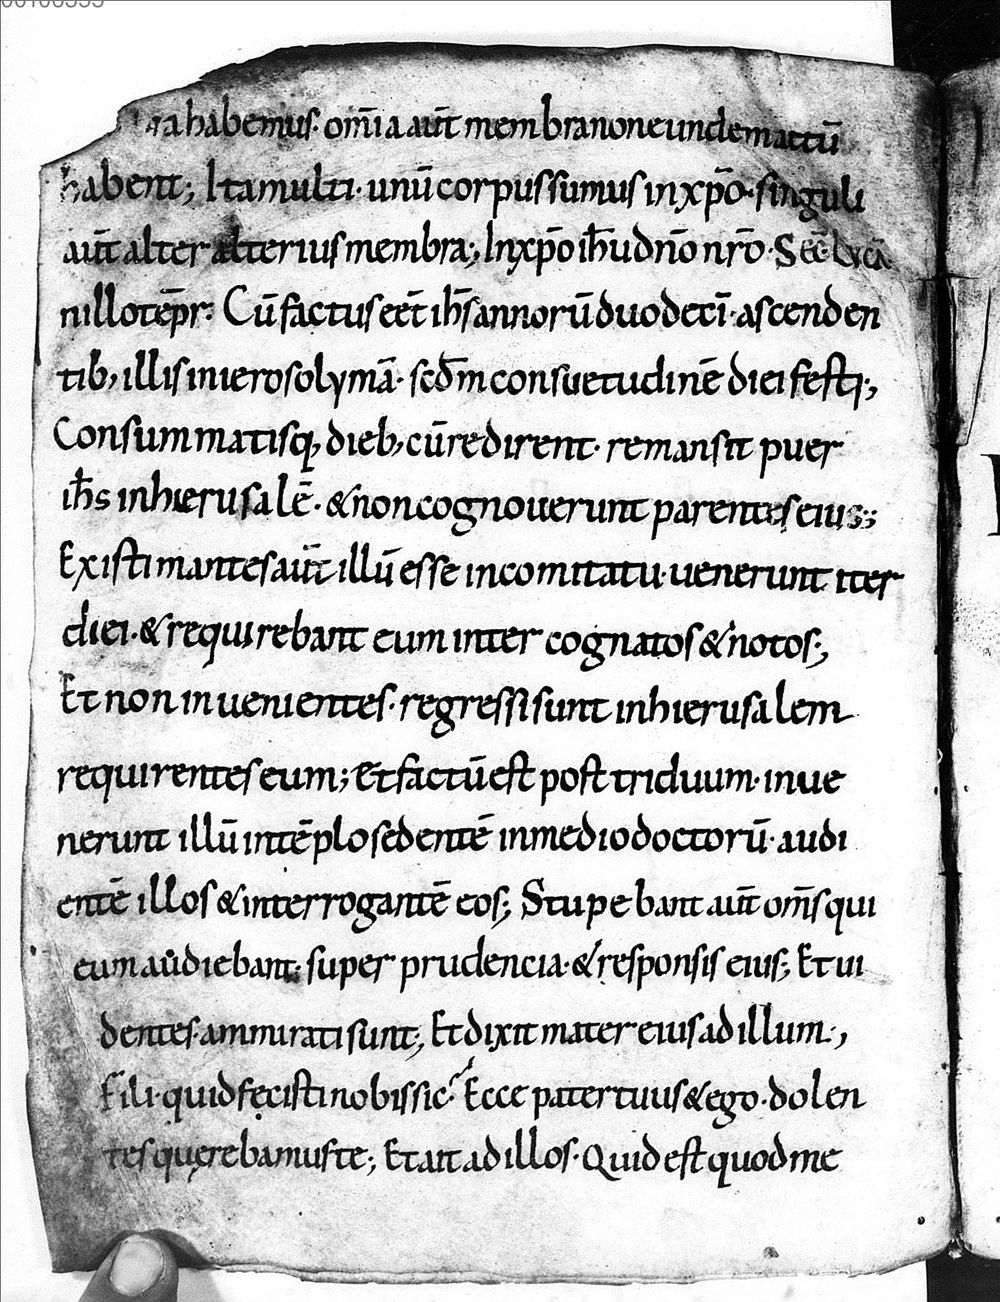 habemus· om̄ia aut̄ membra non eundem actū
habent; Ita multi· unū corpus sumus in xp̄o· singuli
aut̄ alter alterius membra; In xp̄o ih̄u dn̄o nr̄o· Sec̄ Lucā
In illo tēpr· Cū factus eēt ih̄s annorū duodecī· ascenden
tib; illis in ierosolymā· scd̄m consuetudinē diei festi·,
Consummatisq; dieb; cū redirent· remansit puer
ih̄s in hierusalē· & non cognouerunt parentes eius;;
Existimantes aut̄ illū esse in comitatu· uenerunt iter
diei· & requirebant eum inter cognatos & notos·;
Et non inuenientes· regressi sunt in hierusalem
requirentes eum; Et factū est post triduum· inue
nerunt illū in tēplo sedentē in medio doctorū· audi
entē illos & interrogantē eos; Stupebant aut̄ om̄s qui
eum audiebant· super prudencia· & responsis eius; Et ui
dentes· ammirati sunt; Et dixit mater eius ad illum·,
Fili· quid fecisti nobis sic· Ecce pater tuus & ego· dolen
tes quęrebamus te; Et ait ad illos· Quid est quod me